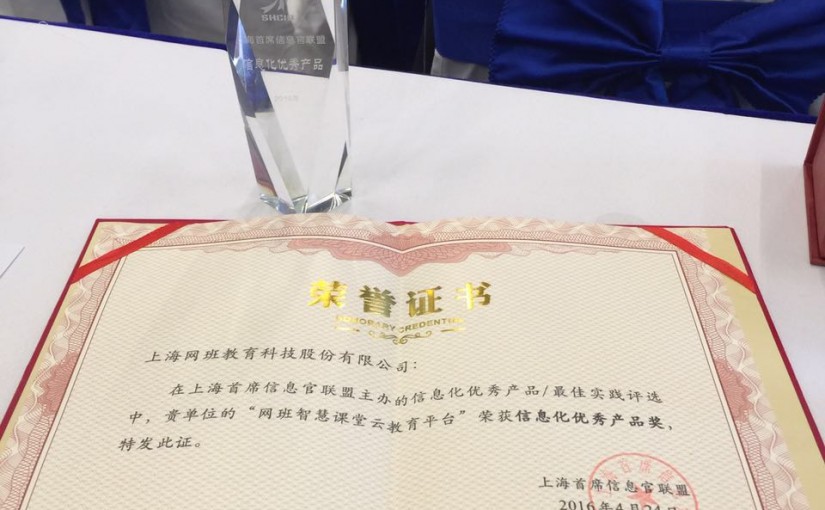 首席信息官联盟
信息化优秀产品
荣誉证书
HONORARY CREDENTIAL
上海网班教育科技股份有限公司：
在上海首席信息官联盟主办的信息化优秀产品/最佳实践评选
中，贵单位的“网班智慧课堂云教育平台”荣获信息化优秀产品奖，
特发此证。
上海首席信息官联盟
2016年4月24日